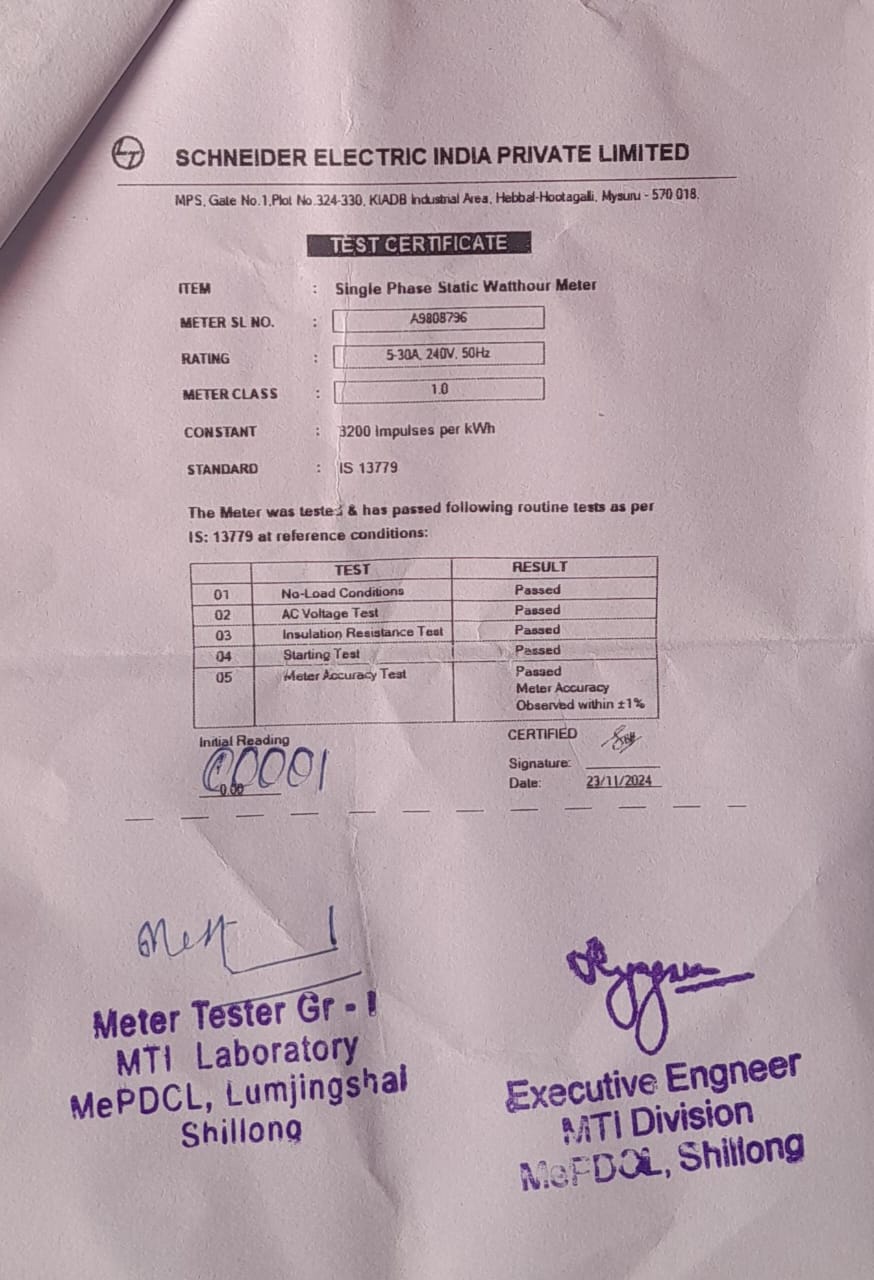 LT
SCHNEIDER ELECTRIC INDIA PRIVATE LIMITED
MPS, Gate No.1,Plot No.324-330, KIADB Industrial Area, Hebbal-Hootagalli, Mysuru - 570 018.
TEST CERTIFICATE
ITEM : Single Phase Static Watthour Meter
METER SL NO. : A9808796
RATING : 5-30A, 240V, 50Hz
METER CLASS : 1.0
CONSTANT : 3200 impulses per kWh
STANDARD : IS 13779
The Meter was tested & has passed following routine tests as per
IS: 13779 at reference conditions:
TEST RESULT
01 No-Load Conditions Passed
02 AC Voltage Test Passed
03 Insulation Resistance Test Passed
04 Starting Test Passed
05 Meter Accuracy Test Passed
Meter Accuracy
Observed within ±1%
Initial Reading
00001
0.00
CERTIFIED
Signature:
Date: 23/11/2024
Meter Tester Gr - I
MTI Laboratory
MePDCL, Lumjingshai
Shillong
Executive Engneer
MTI Division
MePDCL, Shillong